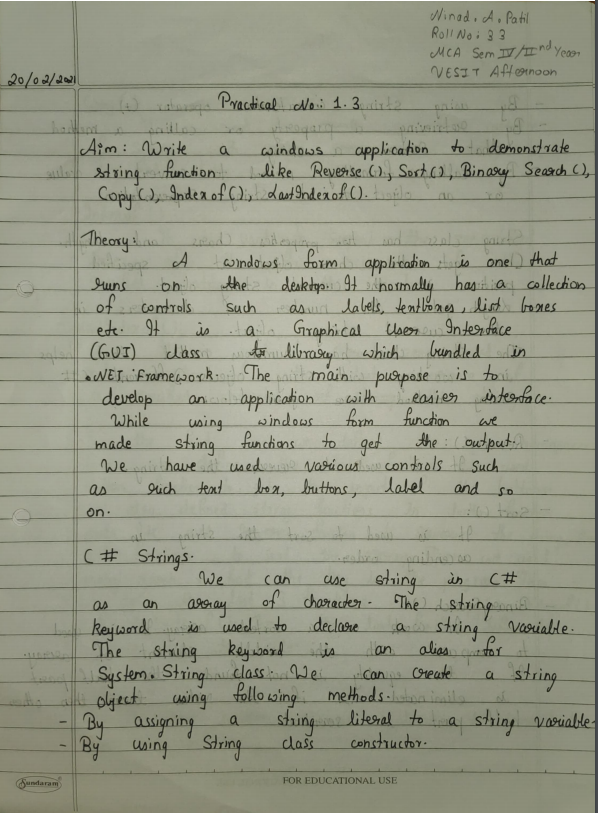 Ninad. A. Patil
Roll No: 33
MCA Sem IV/IInd Year
VESIT Afternoon
20/02/2021
Practical No: 1.3
Aim: Write a windows application to demonstrate
string function like Reverse(), Sort(), Binary Search(),
Copy(), Indexof(), LastIndexof().
Theory:
A windows form application is one that
runs on the desktop. It normally has a collection
of controls such as labels, textboxes, list boxes
etc. It is a Graphical User Interface
(GUI) class library which bundled in
.NET Framework. The main purpose is to
develop an application with easier interface.
While using windows form function we
made string functions to get the output.
We have used various controls such
as rich text box, buttons, label and so
on.
C# Strings.
We can use string in C#
as an array of character. The string
keyword is used to declare a string variable.
The string keyword is an alias for
System.String class. We can create a string
object using following methods.
- By assigning a string literal to a string variable.
- By using String class constructor.
Sundaram
FOR EDUCATIONAL USE